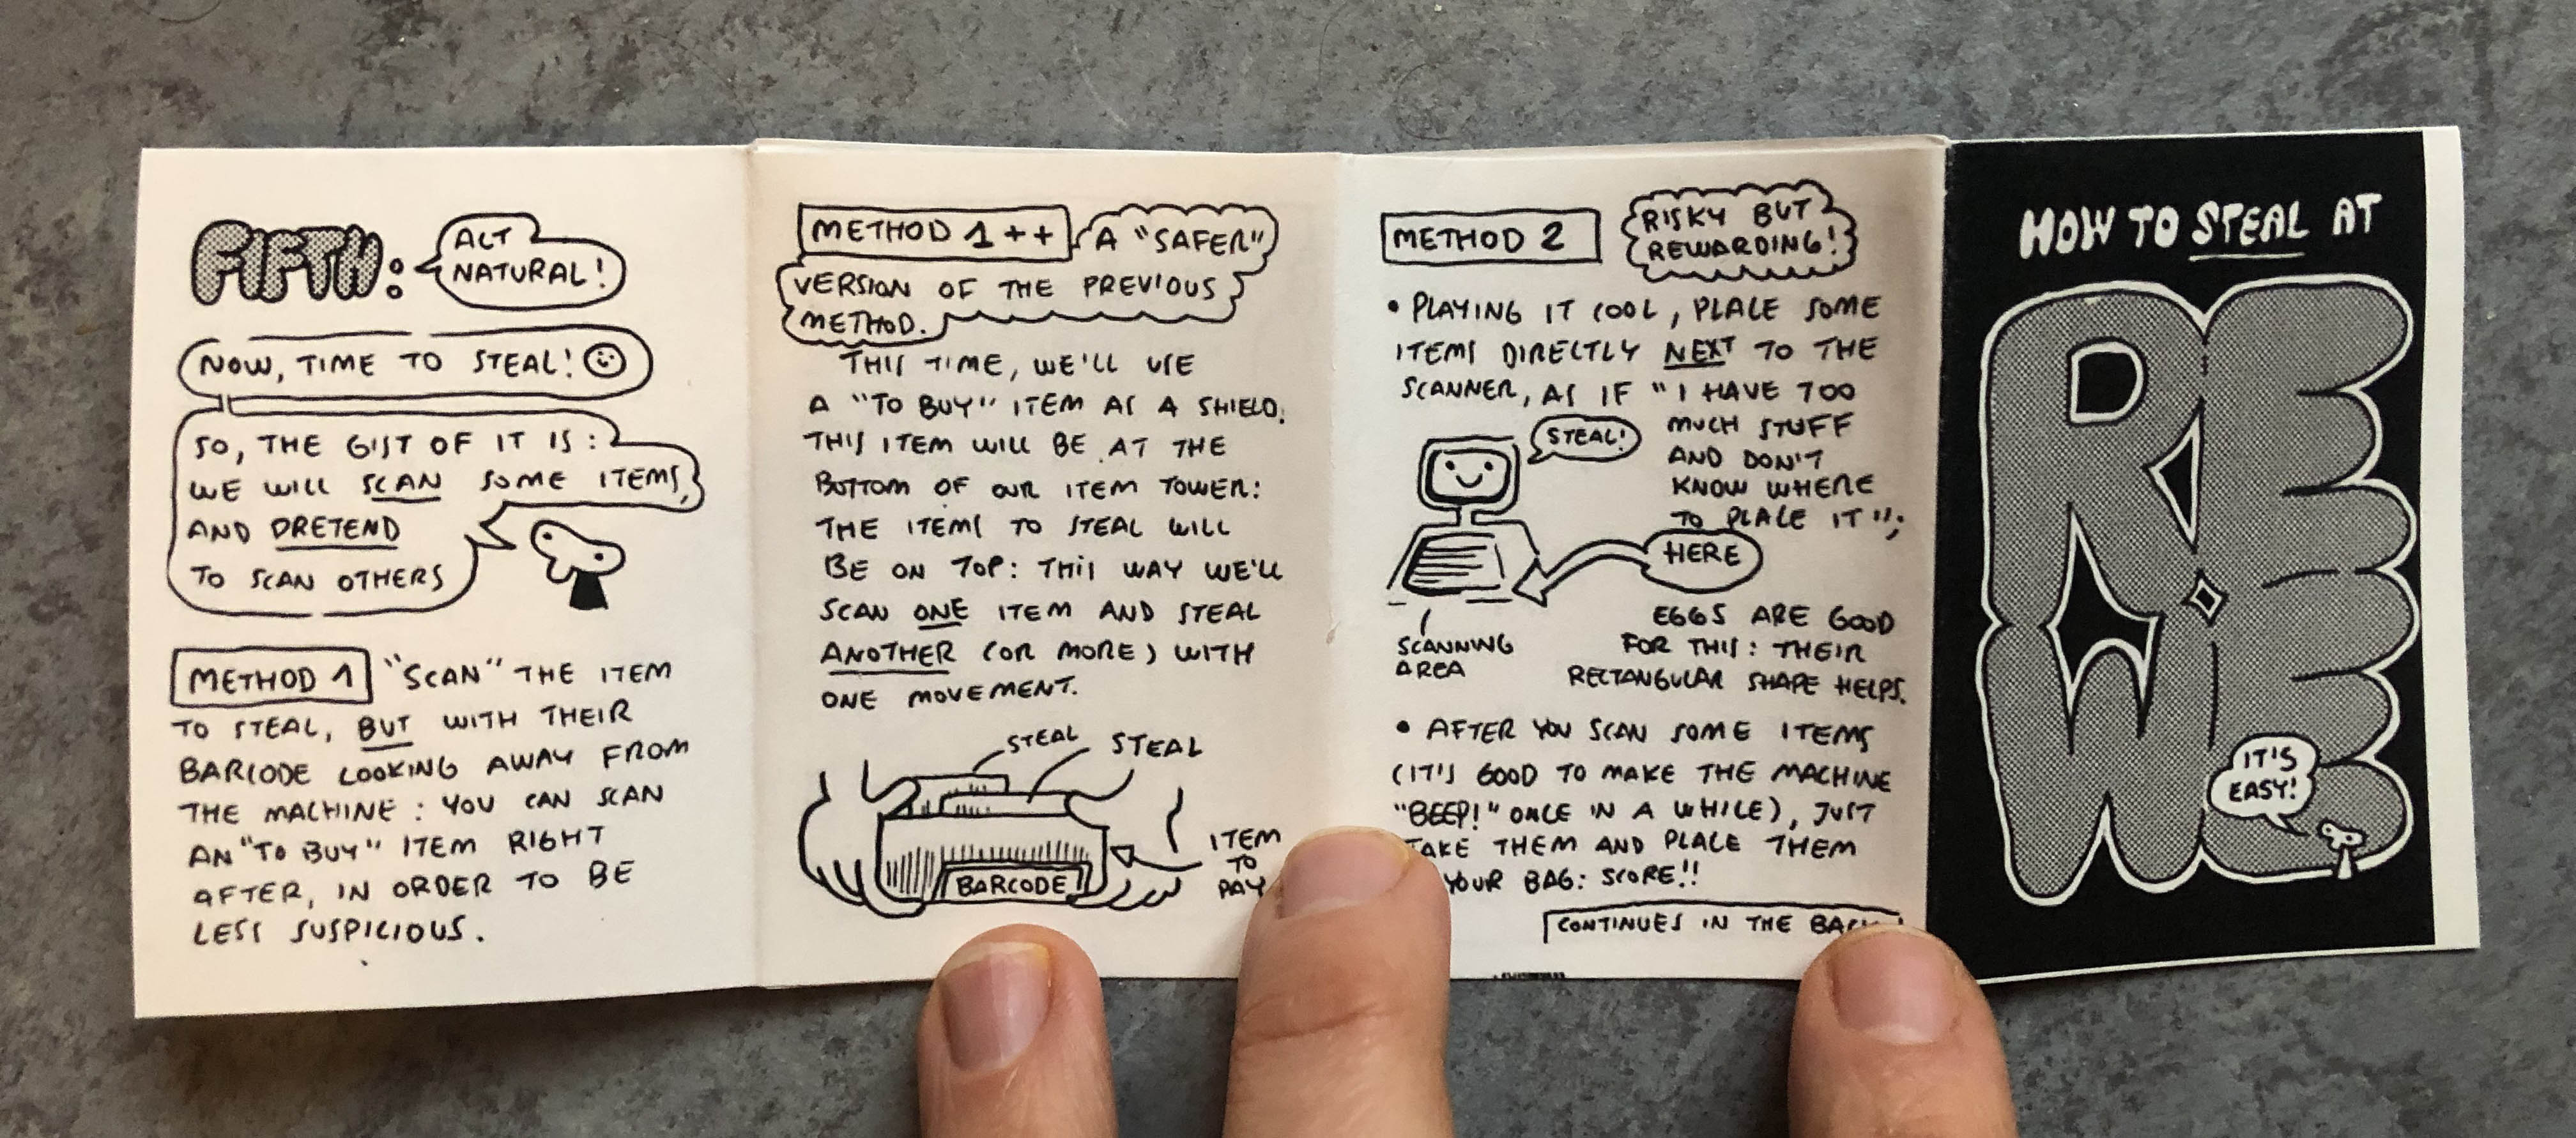 FIFTH:
ACT
NATURAL!
NOW, TIME TO STEAL!
SO, THE GIST OF IT IS:
WE WILL SCAN SOME ITEMS,
AND PRETEND
TO SCAN OTHERS
METHOD 1 "SCAN" THE ITEM
TO STEAL, BUT WITH THEIR
BARCODE LOOKING AWAY FROM
THE MACHINE: YOU CAN SCAN
AN "TO BUY" ITEM RIGHT
AFTER, IN ORDER TO BE
LESS SUSPICIOUS.
METHOD 1++ A "SAFER"
VERSION OF THE PREVIOUS
METHOD.
THIS TIME, WE'LL USE
A "TO BUY" ITEM AS A SHIELD.
THIS ITEM WILL BE AT THE
BOTTOM OF OUR ITEM TOWER:
THE ITEMS TO STEAL WILL
BE ON TOP: THIS WAY WE'LL
SCAN ONE ITEM AND STEAL
ANOTHER (OR MORE) WITH
ONE MOVEMENT.
STEAL STEAL
ITEM
TO
PAY
BARCODE
METHOD 2
RISKY BUT
REWARDING!
• PLAYING IT COOL, PLACE SOME
ITEMS DIRECTLY NEXT TO THE
SCANNER, AS IF "I HAVE TOO
MUCH STUFF
AND DON'T
KNOW WHERE
TO PLACE IT";
STEAL!
HERE
SCANNING
AREA
EGGS ARE GOOD
FOR THIS: THEIR
RECTANGULAR SHAPE HELPS.
• AFTER YOU SCAN SOME ITEMS
(IT'S GOOD TO MAKE THE MACHINE
"BEEP!" ONCE IN A WHILE), JUST
TAKE THEM AND PLACE THEM
YOUR BAG: SCORE!!
CONTINUES IN THE BACK!
HOW TO STEAL AT
RE
WE
IT'S
EASY!